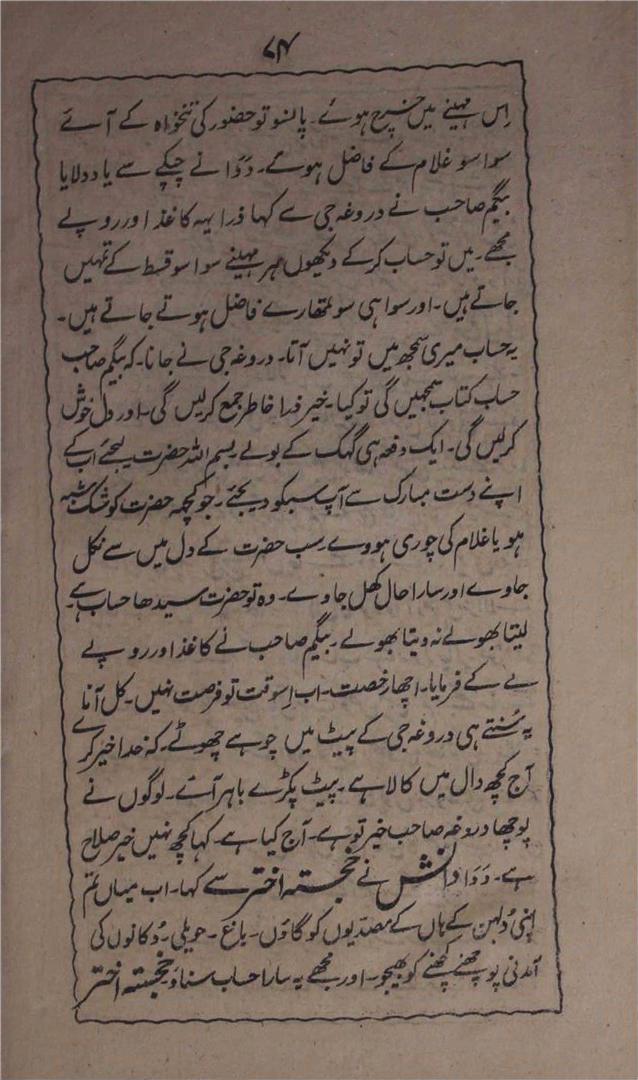 ۷۴
اِس مہینے میں خرچ ہوئے۔ پانسو تو حضور کی تنخواہ کے آئے
سوا سو غلام کے فاضل ہوئے۔ دَدَا نے چپکے سے یاد دلایا
بیگم صاحب نے دروغہ جی سے کہا ذرا یہہ کاغذ اور روپے
مجھے۔ میں تو حساب کرکے دیکھوں ہر مہینے سوا سو قسط کے تمہیں
جاتے ہیں۔ اور سوا ہی سو تمھارے فاضل ہوتے جاتے ہیں۔
یہ حساب میری سمجھ میں تو نہیں آتا۔ دروغہ جی نے جانا۔ کہ بیگم صاحب
حساب کتاب سمجھیں گی تو کیا۔ خیر ذرا خاطر جمع کرلیں گی۔ اور دل خوش
کرلیں گی۔ ایک دفعہ ہی گہک کے بولے بسم اللہ حضرت لیجئے اب کے
اپنے دست مبارک سے آپ سبکو دیجئے۔ جو کچھ حضرت کو شک شبہ
ہو یا غلام کی چوری ہووے سب حضرت کے دل میں سے نکل
جاوے اور سارا حال کھل جاوے۔ وہ تو حضرت سیدھا حساب ہے۔
لیتا بھولے نہ دیتا بھولے۔ بیگم صاحب نے کاغذ اور روپے
لے کے فرمایا۔ اچھا رخصت۔ اب اِسوقت تو فرصت نہیں۔ کل آنا
یہ سُنتے ہی دروغہ جی کے پیٹ میں چوہے چھوٹے۔ کہ خدا خیر کرے
آج کچھ دال میں کالا ہے۔ پیٹ پکڑے باہر آئے۔ لوگوں نے
پوچھا دروغہ صاحب خیر تو ہے۔ آج کیا ہے۔ کہا کچھ نہیں خیر صلاح
ہے۔ دَدَا دانش نے خجستہ اختر سے کہا۔ اب میاں تم
اپنی دُلہن کے ہاں کے مصدیوں کو گاؤں۔ باغ۔ حویلی۔ دُکانوں کی
آمدنی پوچھنے لکھنے کو بھیجو۔ اور مجھے یہ سارا حساب سناؤ خجستہ اختر